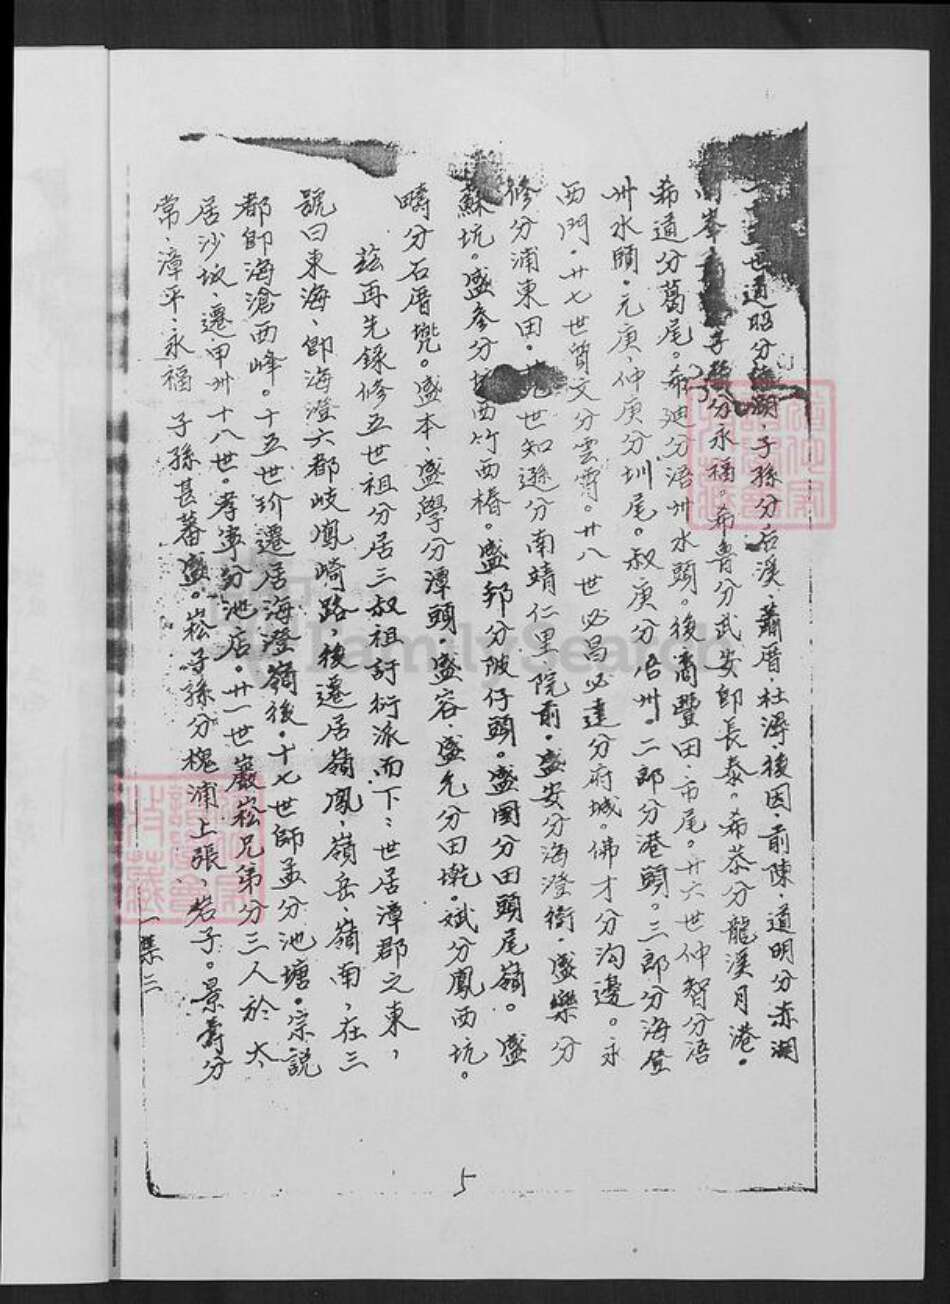 世通昭分 頭、子孫分后溪、蕭厝、杜潯、後因、前陳、道明分赤湖
峯 子孫分永福。希魯分武安即長泰。希恭分龍溪月港。
希適分葛尾。希廸分浯州水頭。後滴豐田、市尾。廿六世仲智分浯
州水頭。元庚、仲庚分圳尾。叔庚分浯州。二郎分港頭。三郎分海登
西門。廿七世質文分雲霄。廿八世必昌必達分府城。佛才分沟邊。永
修分浦東田。 九世知遜分南靖仁里院前。盛安分海澄街、盛樂分
蘇坑。盛參分 西竹西椿。盛邦分陂仔頭。盛國分田頭尾嶺。盛
疇分石厝㙮。盛本、盛學分潭頭、盛容、盛允分田墘。斌分鳳西坑。
茲再先錄修五世祖分居三叔祖訂衍派而下：世居漳郡之東，
號曰東海、即海澄六都岐鳳崎路，後遷居嶺鳳、嶺岳、嶺南，在三
都即海滄西峰。十五世玠遷居海澄嶺後。十七世師孟分池塘。宗說
居沙坂、遷甲州十八世。孝 分池店。廿一世巖崧兄弟分三人於太
常、漳平、永福 子孫甚蕃盛。崧子孫分槐浦上張、岩子。景壽分
一集三
5